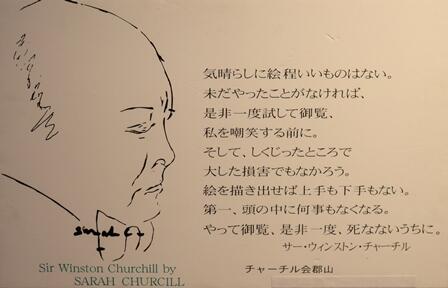 気晴らしに絵程いいものはない。
未だやったことがなければ、
是非一度試して御覧、
私を嘲笑する前に。
そして、しくじったところで
大した損害でもなかろう。
絵を描き出せば上手も下手もない。
第一、頭の中に何事もなくなる。
やって御覧、是非一度、死なないうちに。
サー・ウィンストン・チャーチル
チャーチル会郡山
Sir Winston Churchill by
SARAH CHURCILL